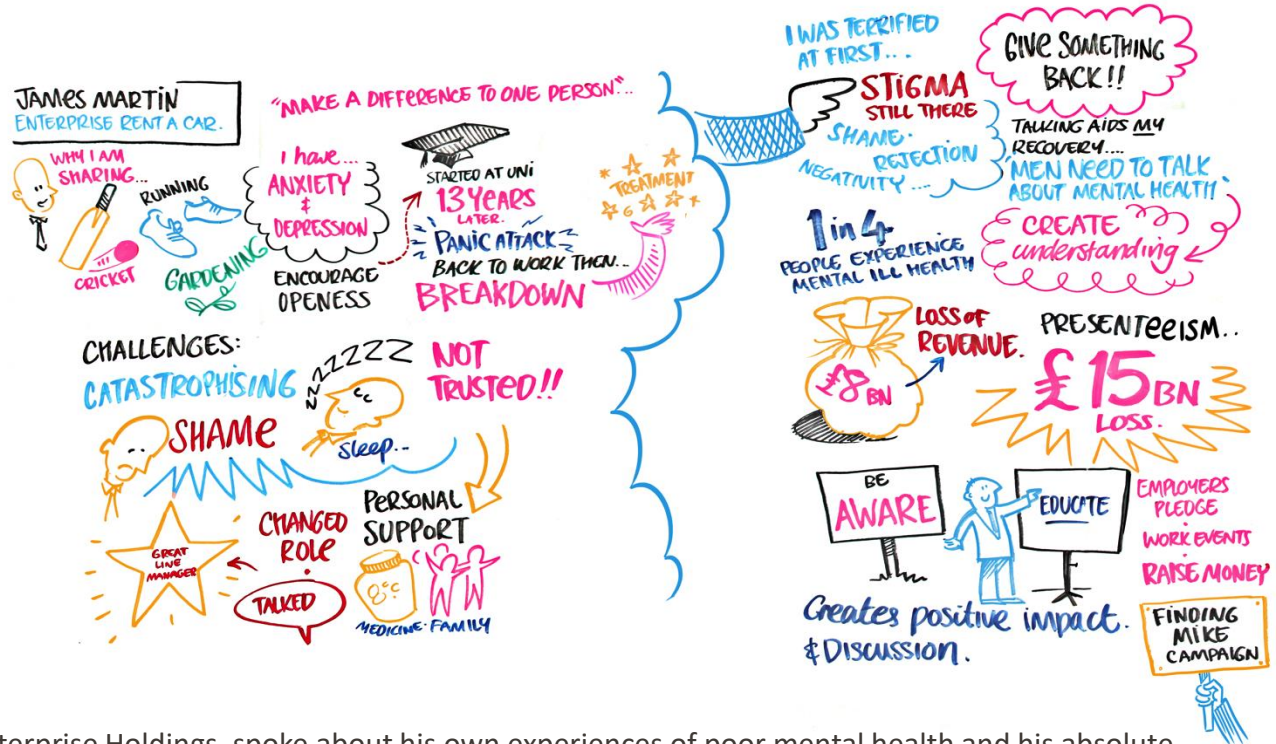 JAMES MARTIN
ENTERPRISE RENT A CAR.
WHY I AM
SHARING...
RUNNING
CRICKET
GARDENING
"MAKE A DIFFERENCE TO ONE PERSON"...
I have...
ANXIETY
&
DEPRESSION
ENCOURAGE
OPENESS
STARTED AT UNI
13 YEARS
LATER.
PANIC ATTACK
BACK TO WORK THEN...
BREAKDOWN
TREATMENT
CHALLENGES:
CATASTROPHISING
SHAME
ZZZZZZZ
sleep...
NOT
TRUSTED!!
GREAT
LINE
MANAGER
CHANGED
ROLE
TALKED
PERSONAL
SUPPORT
MEDICINE · FAMILY
I WAS TERRIFIED
AT FIRST...
STIGMA
STILL THERE
SHAME ·
REJECTION
NEGATIVITY....
GIVE SOMETHING
BACK!!
TALKING AIDS MY
RECOVERY....
MEN NEED TO TALK
ABOUT MENTAL HEALTH.
CREATE
understanding
1 in 4
PEOPLE EXPERIENCE
MENTAL ILL HEALTH
£8 BN
LOSS OF
REVENUE.
PRESENTEEISM..
£15 BN
LOSS.
BE
AWARE
EDUCATE
EMPLOYERS
PLEDGE
WORK EVENTS
RAISE MONEY
Creates positive impact.
& Discussion.
FINDING
MIKE
CAMPAIGN
terprise Holdings, spoke about his own experiences of poor mental health and his absolute